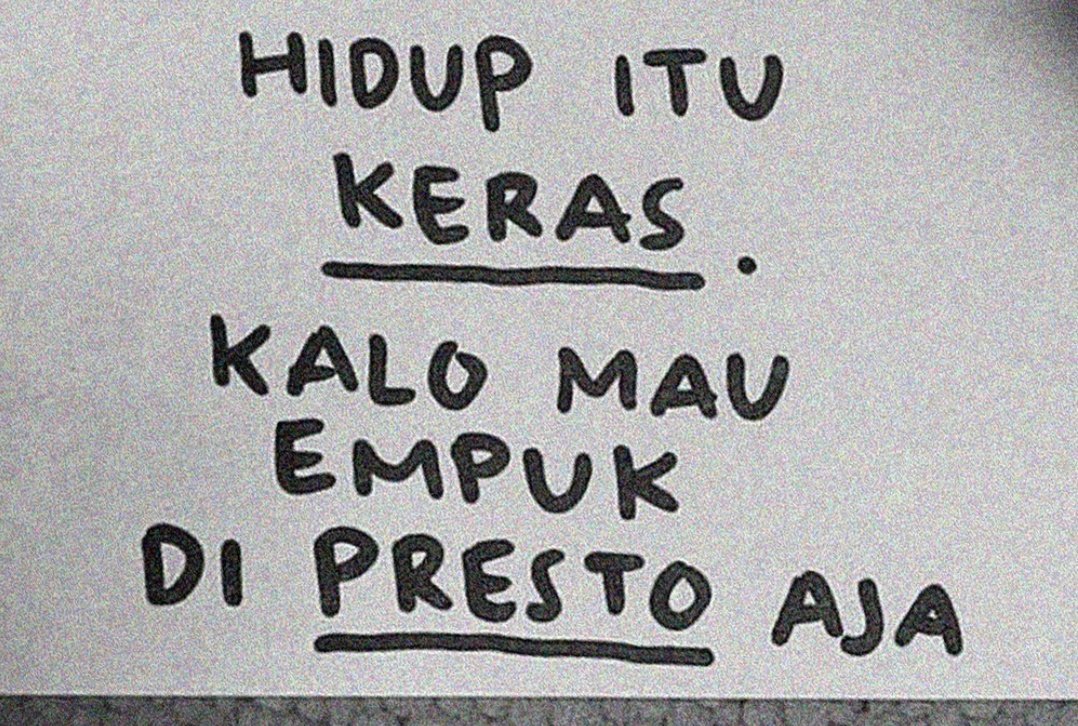 HIDUP ITU
KERAS.
KALO MAU
EMPUK
DI PRESTO AJA